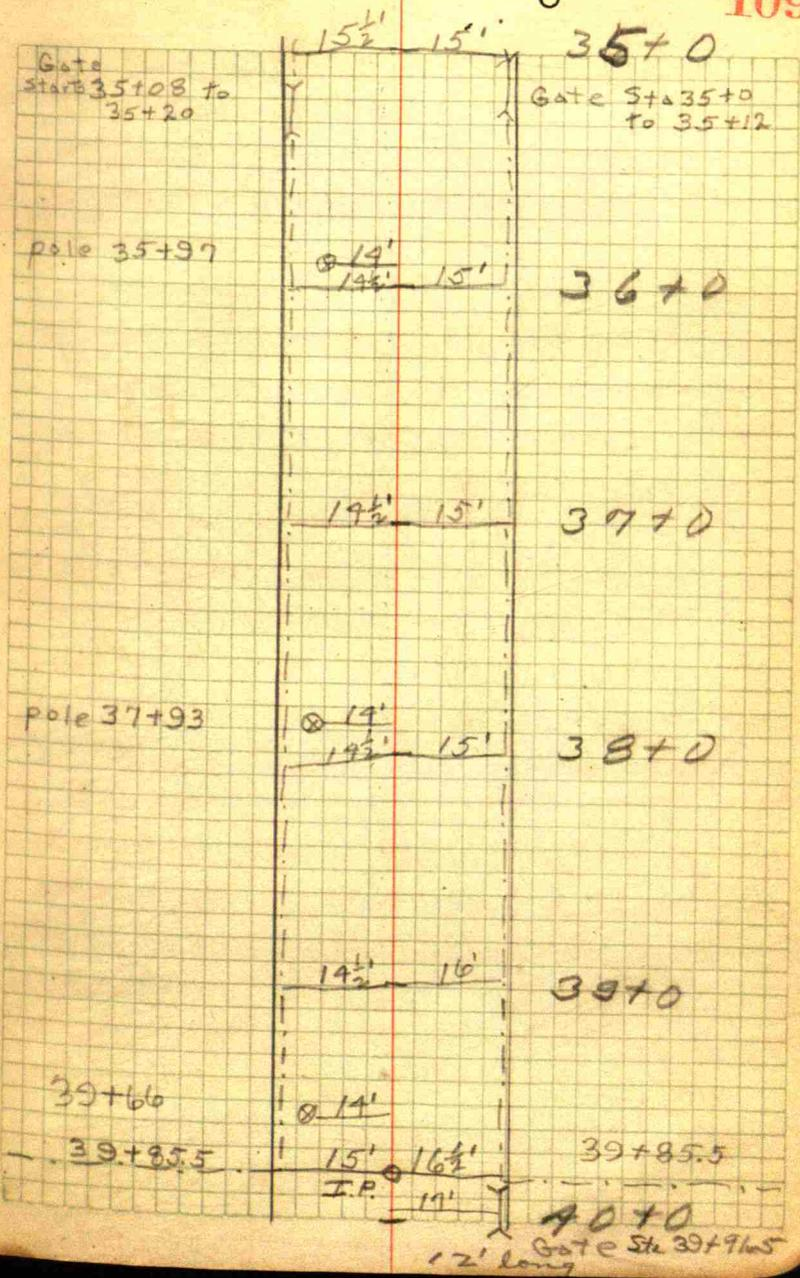 109
15½' 15' 35+0
Gate
starts 35+08 to
35+20
Gate Sta 35+0
to 35+12
pole 35+97
14'
14½' 15' 36+0
14½' 15' 37+0
pole 37+93
14'
14½' 15' 38+0
14½' 16' 39+0
39+66
14'
39+85.5 15' 16½' 39+85.5
I.P.
17' 40+0
Gate Sta
12' long